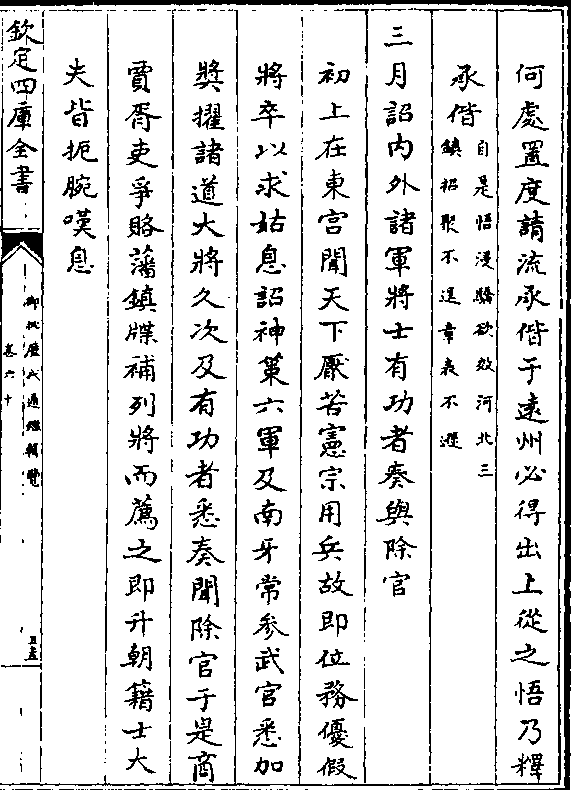 何處置度請流承偕于遠州必得出上從之悟乃釋
承偕自是悟浸驕欲效河北三
鎮招聚不逞章表不遜
三月詔内外諸軍將士有功者奏與除官
初上在東宮聞天下厭苦憲宗用兵故即位務優假
將卒以求姑息詔神策六軍及南牙常參武官悉加
奬擢諸道大將久次及有功者悉奏聞除官于是商
賈胥吏爭賂藩鎮牒補列將而薦之即升朝籍士大
夫皆扼腕嘆息
欽定四庫全書
御批歷代通鑑輯覽
卷六十